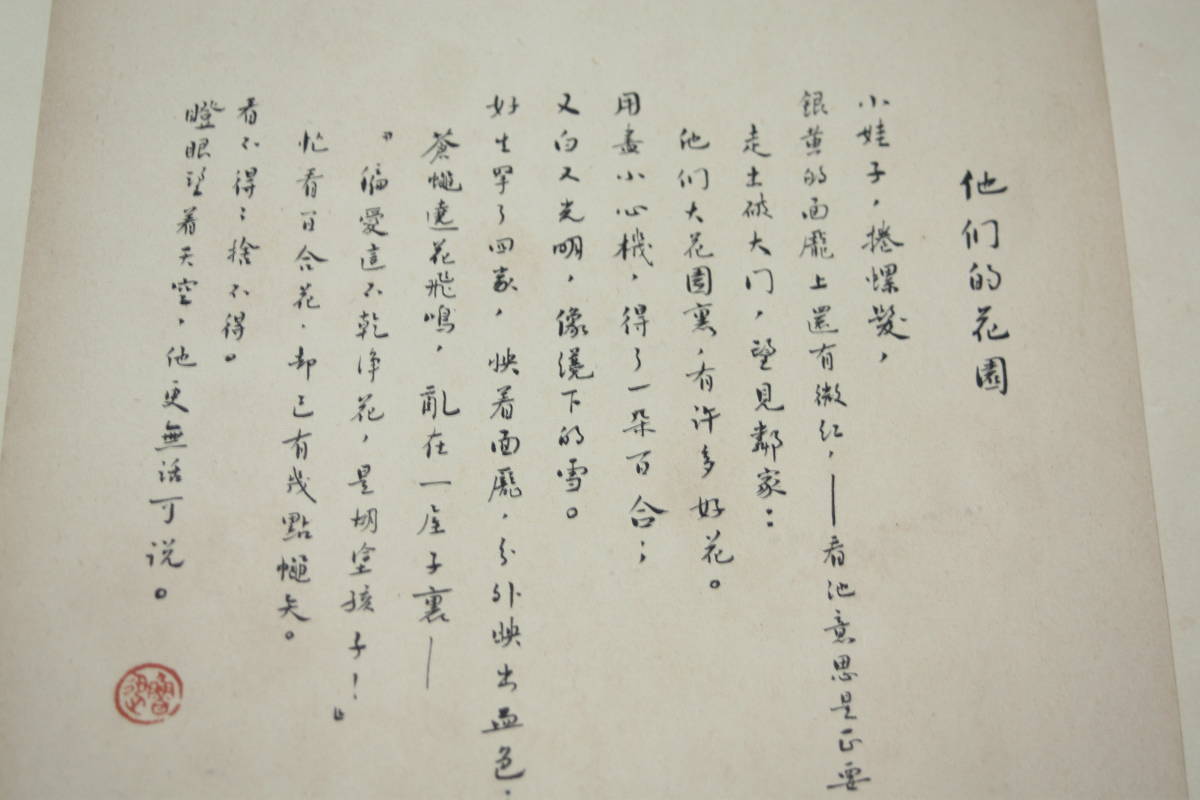 他们的花園
小娃子，捲螺髮，
銀黄的面龐上還有微紅，——看他意思是正要
走出破大门，望見鄰家：
他们大花園裏，有许多好花。
用盡小心機，得了一朵百合；
又白又光明，像纔下的雪。
好生拏了回家，映着面龐，分外映出血色．
蒼蠅遶花飛鳴，亂在一屋子裏—
『偏愛這不乾淨花，是胡塗孩子！』
忙看百合花．却已有幾點蠅矢。
看不得；捨不得。
瞪眼望着天空，他更無话可说。